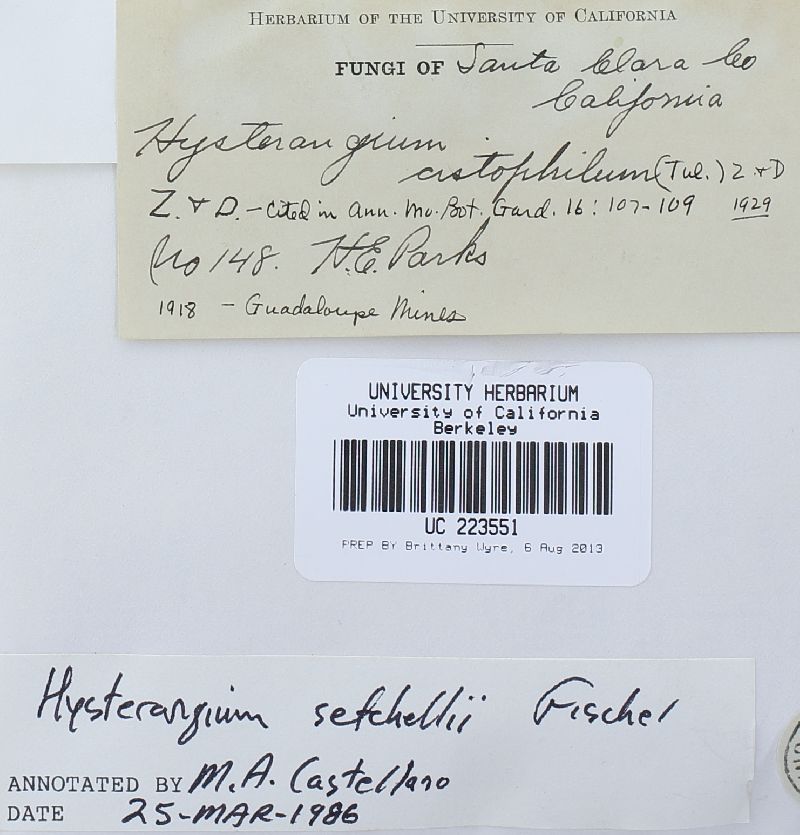 HERBARIUM OF THE UNIVERSITY OF CALIFORNIA
FUNGI OF Santa Clara Co
California
Hysterangium
cistophilum (Tul.) Z & D
Z. & D. - Cited in Ann. Mo. Bot. Gard. 16: 107-109 1929
No 148. H.E. Parks
1918 - Guadaloupe Mines
UNIVERSITY HERBARIUM
University of California
Berkeley
UC 223551
PREP BY Brittany Wyre, 6 Aug 2013
Hysterangium setchellii Fischer
ANNOTATED BY M.A. Castellano
DATE 25-MAR-1986